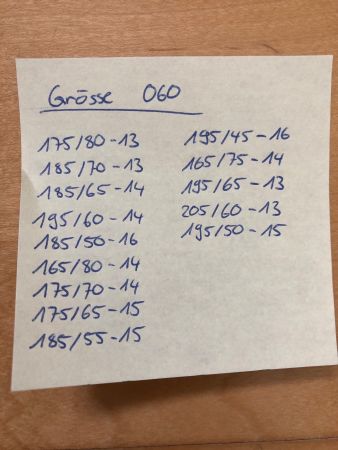 Grösse 060
175/80-13
185/70-13
185/65-14
195/60-14
185/50-16
165/80-14
175/70-14
175/65-15
185/55-15
195/45-16
165/75-14
195/65-13
205/60-13
195/50-15